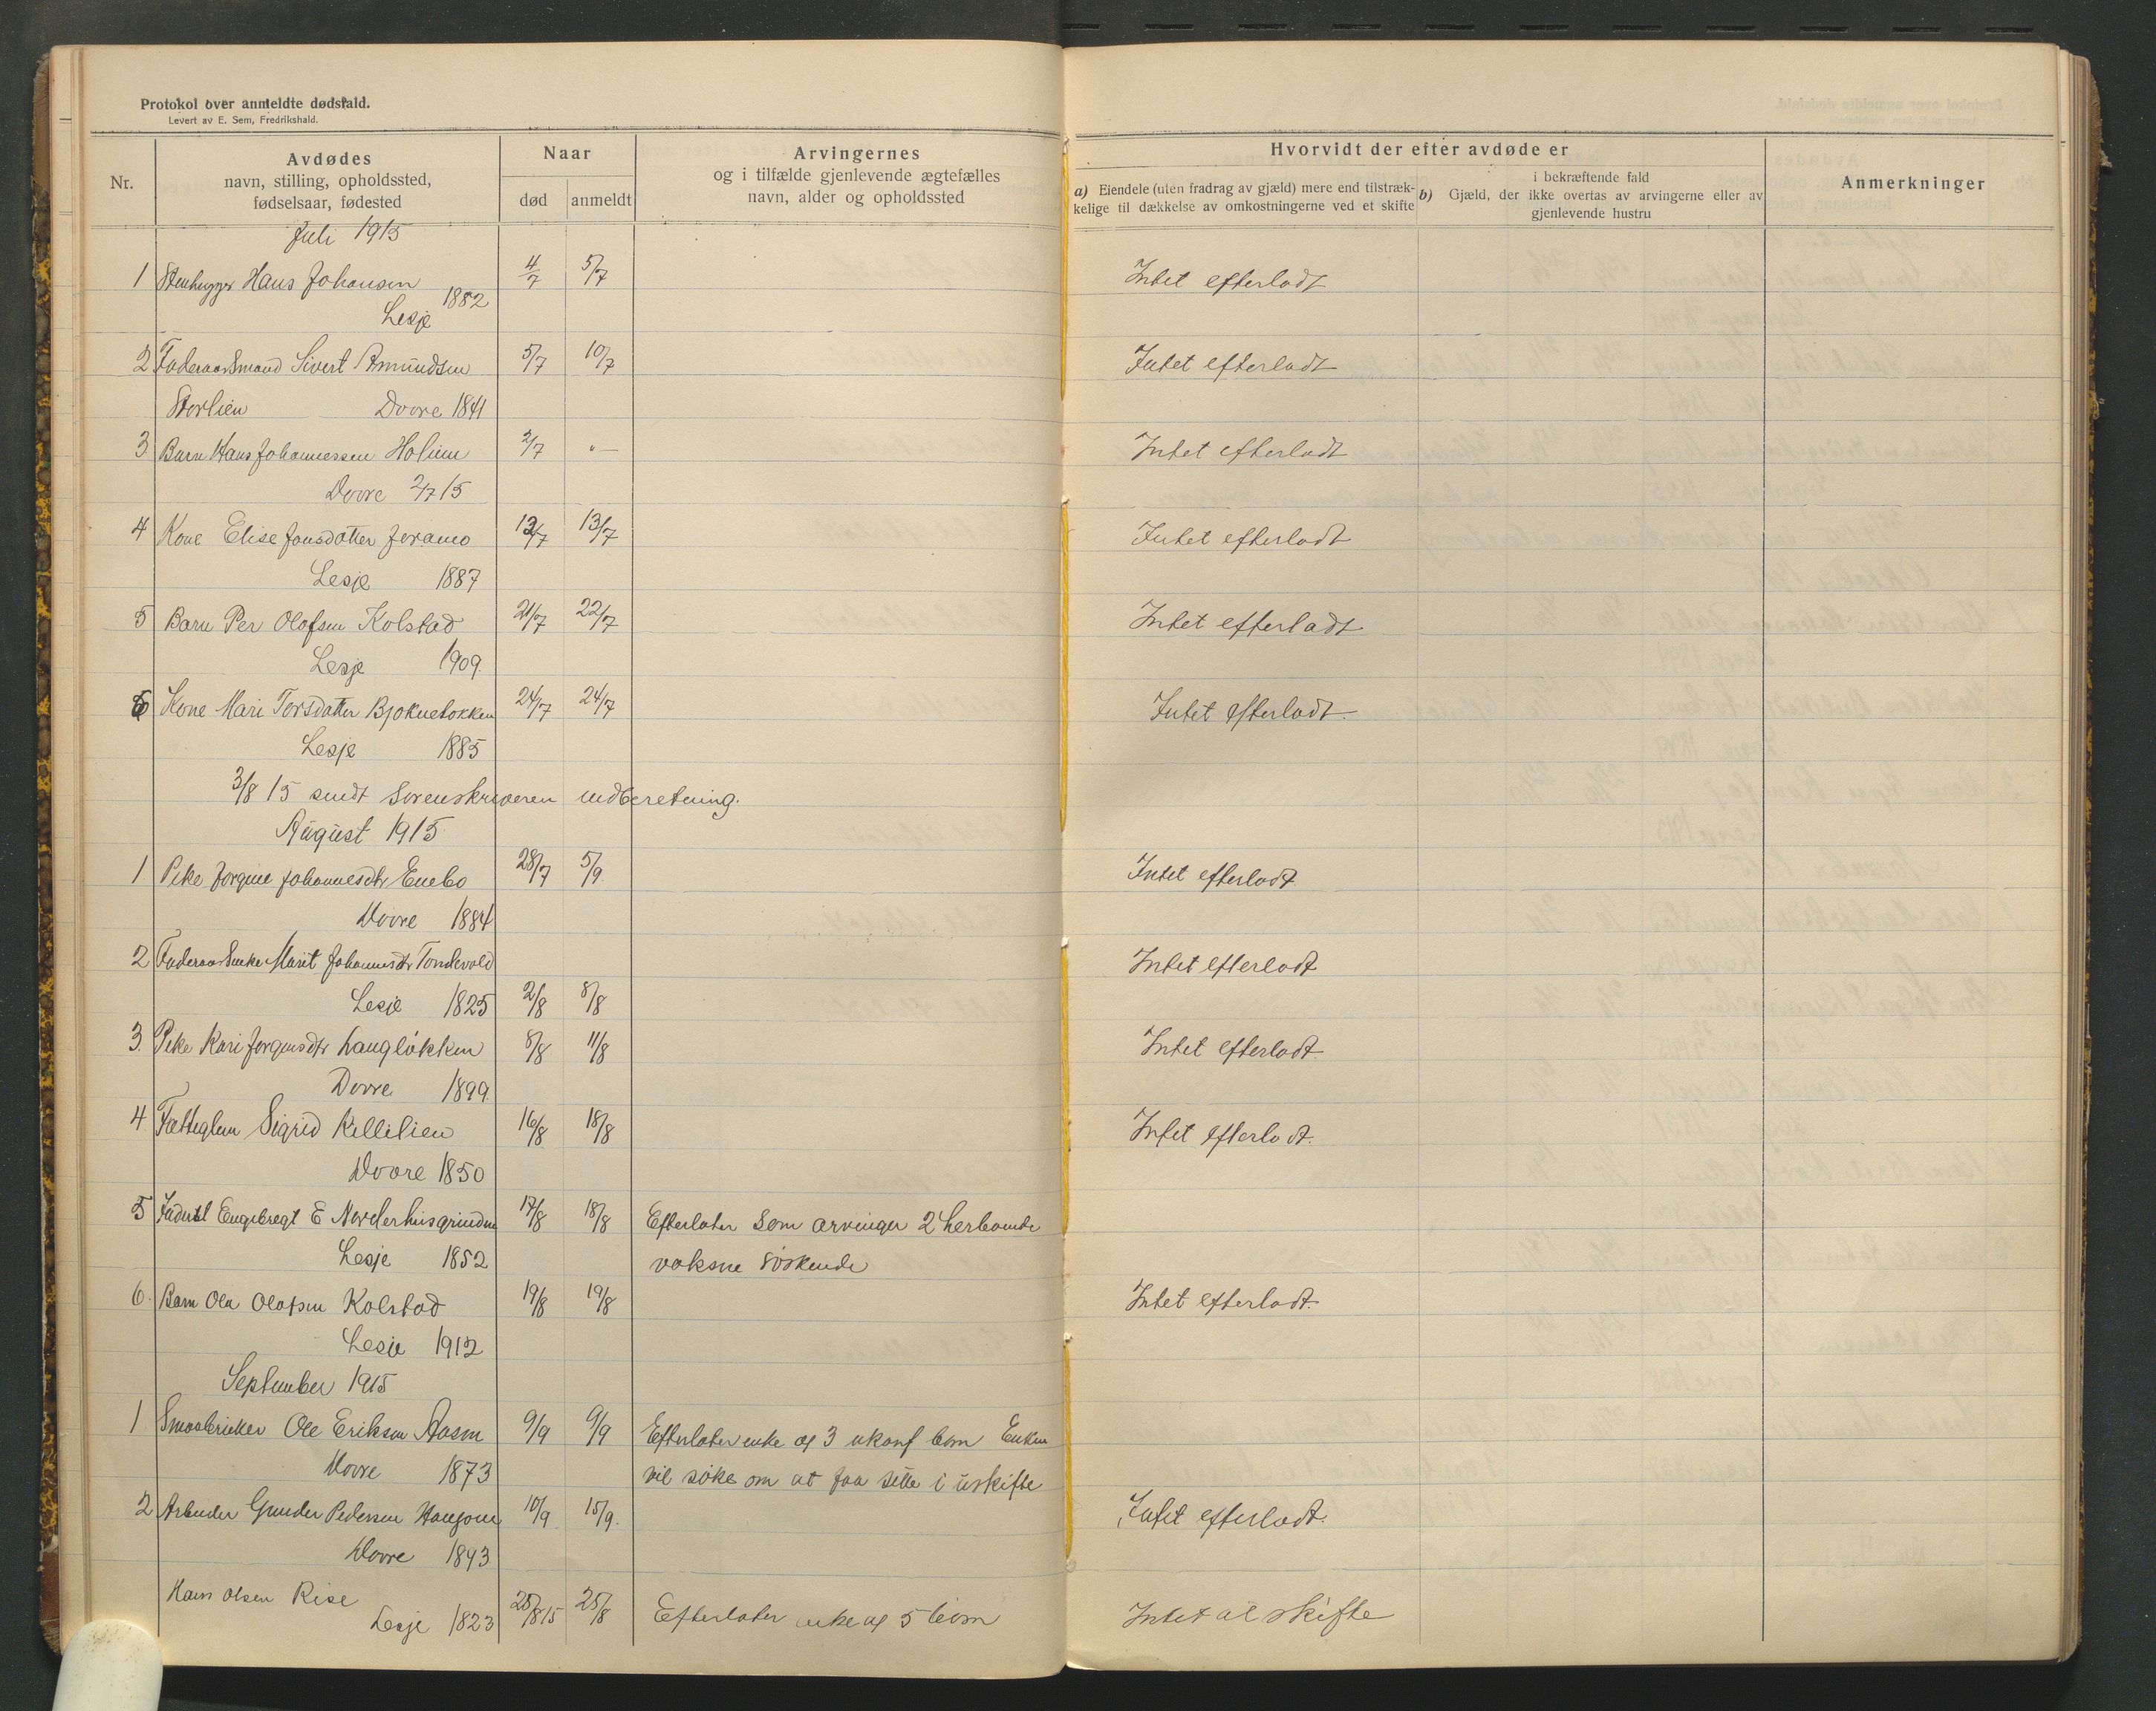 Protokol over anmeldte dødsfald.
Levert av E. Sem, Fredrikshald.
Nr.
Avdødes
navn, stilling, opholdssted,
fødselsaar, fødested
Naar
død
anmeldt
Arvingernes
og i tilfælde gjenlevende ægtefælles
navn, alder og opholdssted
Hvorvidt der efter avdøde er
a) Eiendele (uten fradrag av gjæld) mere end tilstræk-
kelige til dækkelse av omkostningerne ved et skifte
i bekræftende fald
b) Gjæld, der ikke overtas av arvingerne eller av
gjenlevende hustru
Anmerkninger
Juli 1915
1 Stenhugger Hans Johansen 4/7 5/7 Intet efterladt
1882
Lesje
2 Føderaadsmand Sivert Amundsen 5/7 10/7 Intet efterladt
Storlien Dovre 1841
3 Barn Hans Johannessen Holum 2/7 " — Intet efterladt
Dovre 2/7 15
4 Kone Elise Jonsdatter Joramo 13/7 13/7 Intet efterladt
Lesje 1887
5 Barn Per Olafsen Kolstad 21/7 22/7 Intet efterladt
Lesje 1909.
6 Kone Mari Torsdatter Bjokneløkken 24/7 24/7 Intet efterladt.
Lesje 1885
3/8 15 sendt Sorenskriveren indberetning.
August 1915
1 Pike Jorgine Johannesdtr Enebo 28/7 5/9. Intet efterladt
Dovre 1884
2 Føderaadsenke Marit Johannesdtr Tondevold Intet efterladt
Lesje 1825 2/8 8/8
3. Pike Kari Jorgensdtr Haugløkken 8/8 11/8 Intet efterladt.
Dovre 1899.
4 Fattiglem Sigrid Killilien 16/8 18/8 Intet efterladt.
Dovre 1850
5 Engebregt E Norderhusgrinden 17/8 18/8 Efterlater som arvinger 2 herboende
Lesje 1852 voksne søskende
6. Barn Ola Olafsen Kolstad 19/8 19/8 Intet efterladt.
Lesje 1912
September 1915
1 Smaabruker Ole Eriksen Aasen 9/9 9/9 Efterlater enke og 3 ukonf barn Enken
Dovre 1873 vil søke om at faa sitte i uskifte
2 Arbeider Gunder Pedersen Haugom 10/9 15/9. Intet efterladt.
Dovre 1843
Hans Olsen Rise
Lesje 1823 25/8 15 25/8 Efterlater enke og 5 barn Intet at skifte